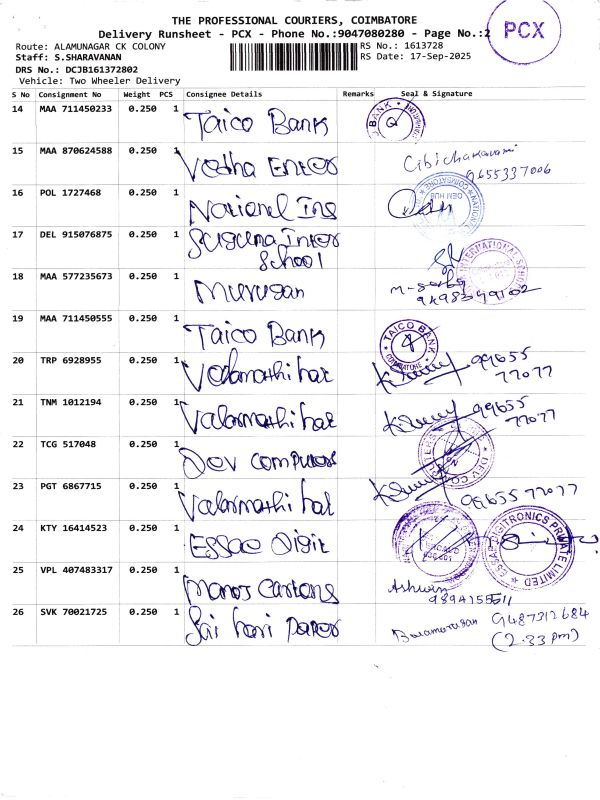 THE PROFESSIONAL COURIERS, COIMBATORE
Delivery Runsheet - PCX - Phone No.:9047080280 - Page No.:2
PCX
Route: ALAMUNAGAR CK COLONY
RS No.: 1613728
Staff: S.SHARAVANAN
RS Date: 17-Sep-2025
DRS No.: DCJB161372802
Vehicle: Two Wheeler Delivery
S No Consignment No Weight PCS Consignee Details Remarks Seal & Signature
14 MAA 711450233 0.250 1 Taico Bank
BANK
15 MAA 870624588 0.250 1 Vedha Enter
Cibichakaravarni
9655337006
16 POL 1727468 0.250 1 National Ins
17 DEL 915076875 0.250 1 Suguna Inter
School
INTERNATIONAL SCHOOL
18 MAA 577235673 0.250 1 Murugan
19 MAA 711450555 0.250 1 Taico Bank
TAICO BANK
COIMBATORE
20 TRP 6928955 0.250 1 Valarmathi har
99655
77077
21 TNM 1012194 0.250 1 Valarmathi har
99655
77077
22 TCG 517048 0.250 1 Dev computers
23 PGT 6867715 0.250 1 Valarmathi har
99655 77077
24 KTY 16414523 0.250 1 Essae Digit
ESSAE DIGITRONICS PRIVATE LIMITED
25 VPL 407483317 0.250 1 Manos Cartons
Ashwin
26 SVK 70021725 0.250 1 Sai hari Paper
9487312684
(2.33 pm)